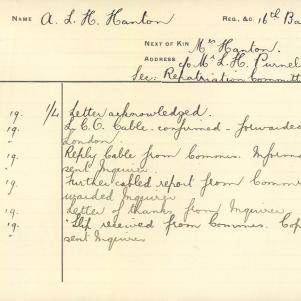 NAME A. L. H. Hanton REG., &C. 16th Ba
NEXT OF KIN Mrs Hanton.
ADDRESS c/o Mr L. H. Purnel
Sec: Repatriation Committ
19. 1/4 Letter acknowledged.
19. Cable confirmed. forwarded
" London.
19. Reply Cable from Commrs. Inform
" sent Inquirer.
19. Further cabled report from Commr
" warded Inquirer
19. Letter of thanks from Inquirer.
19. Slip received from Commrs. Cop
" sent Inquirer